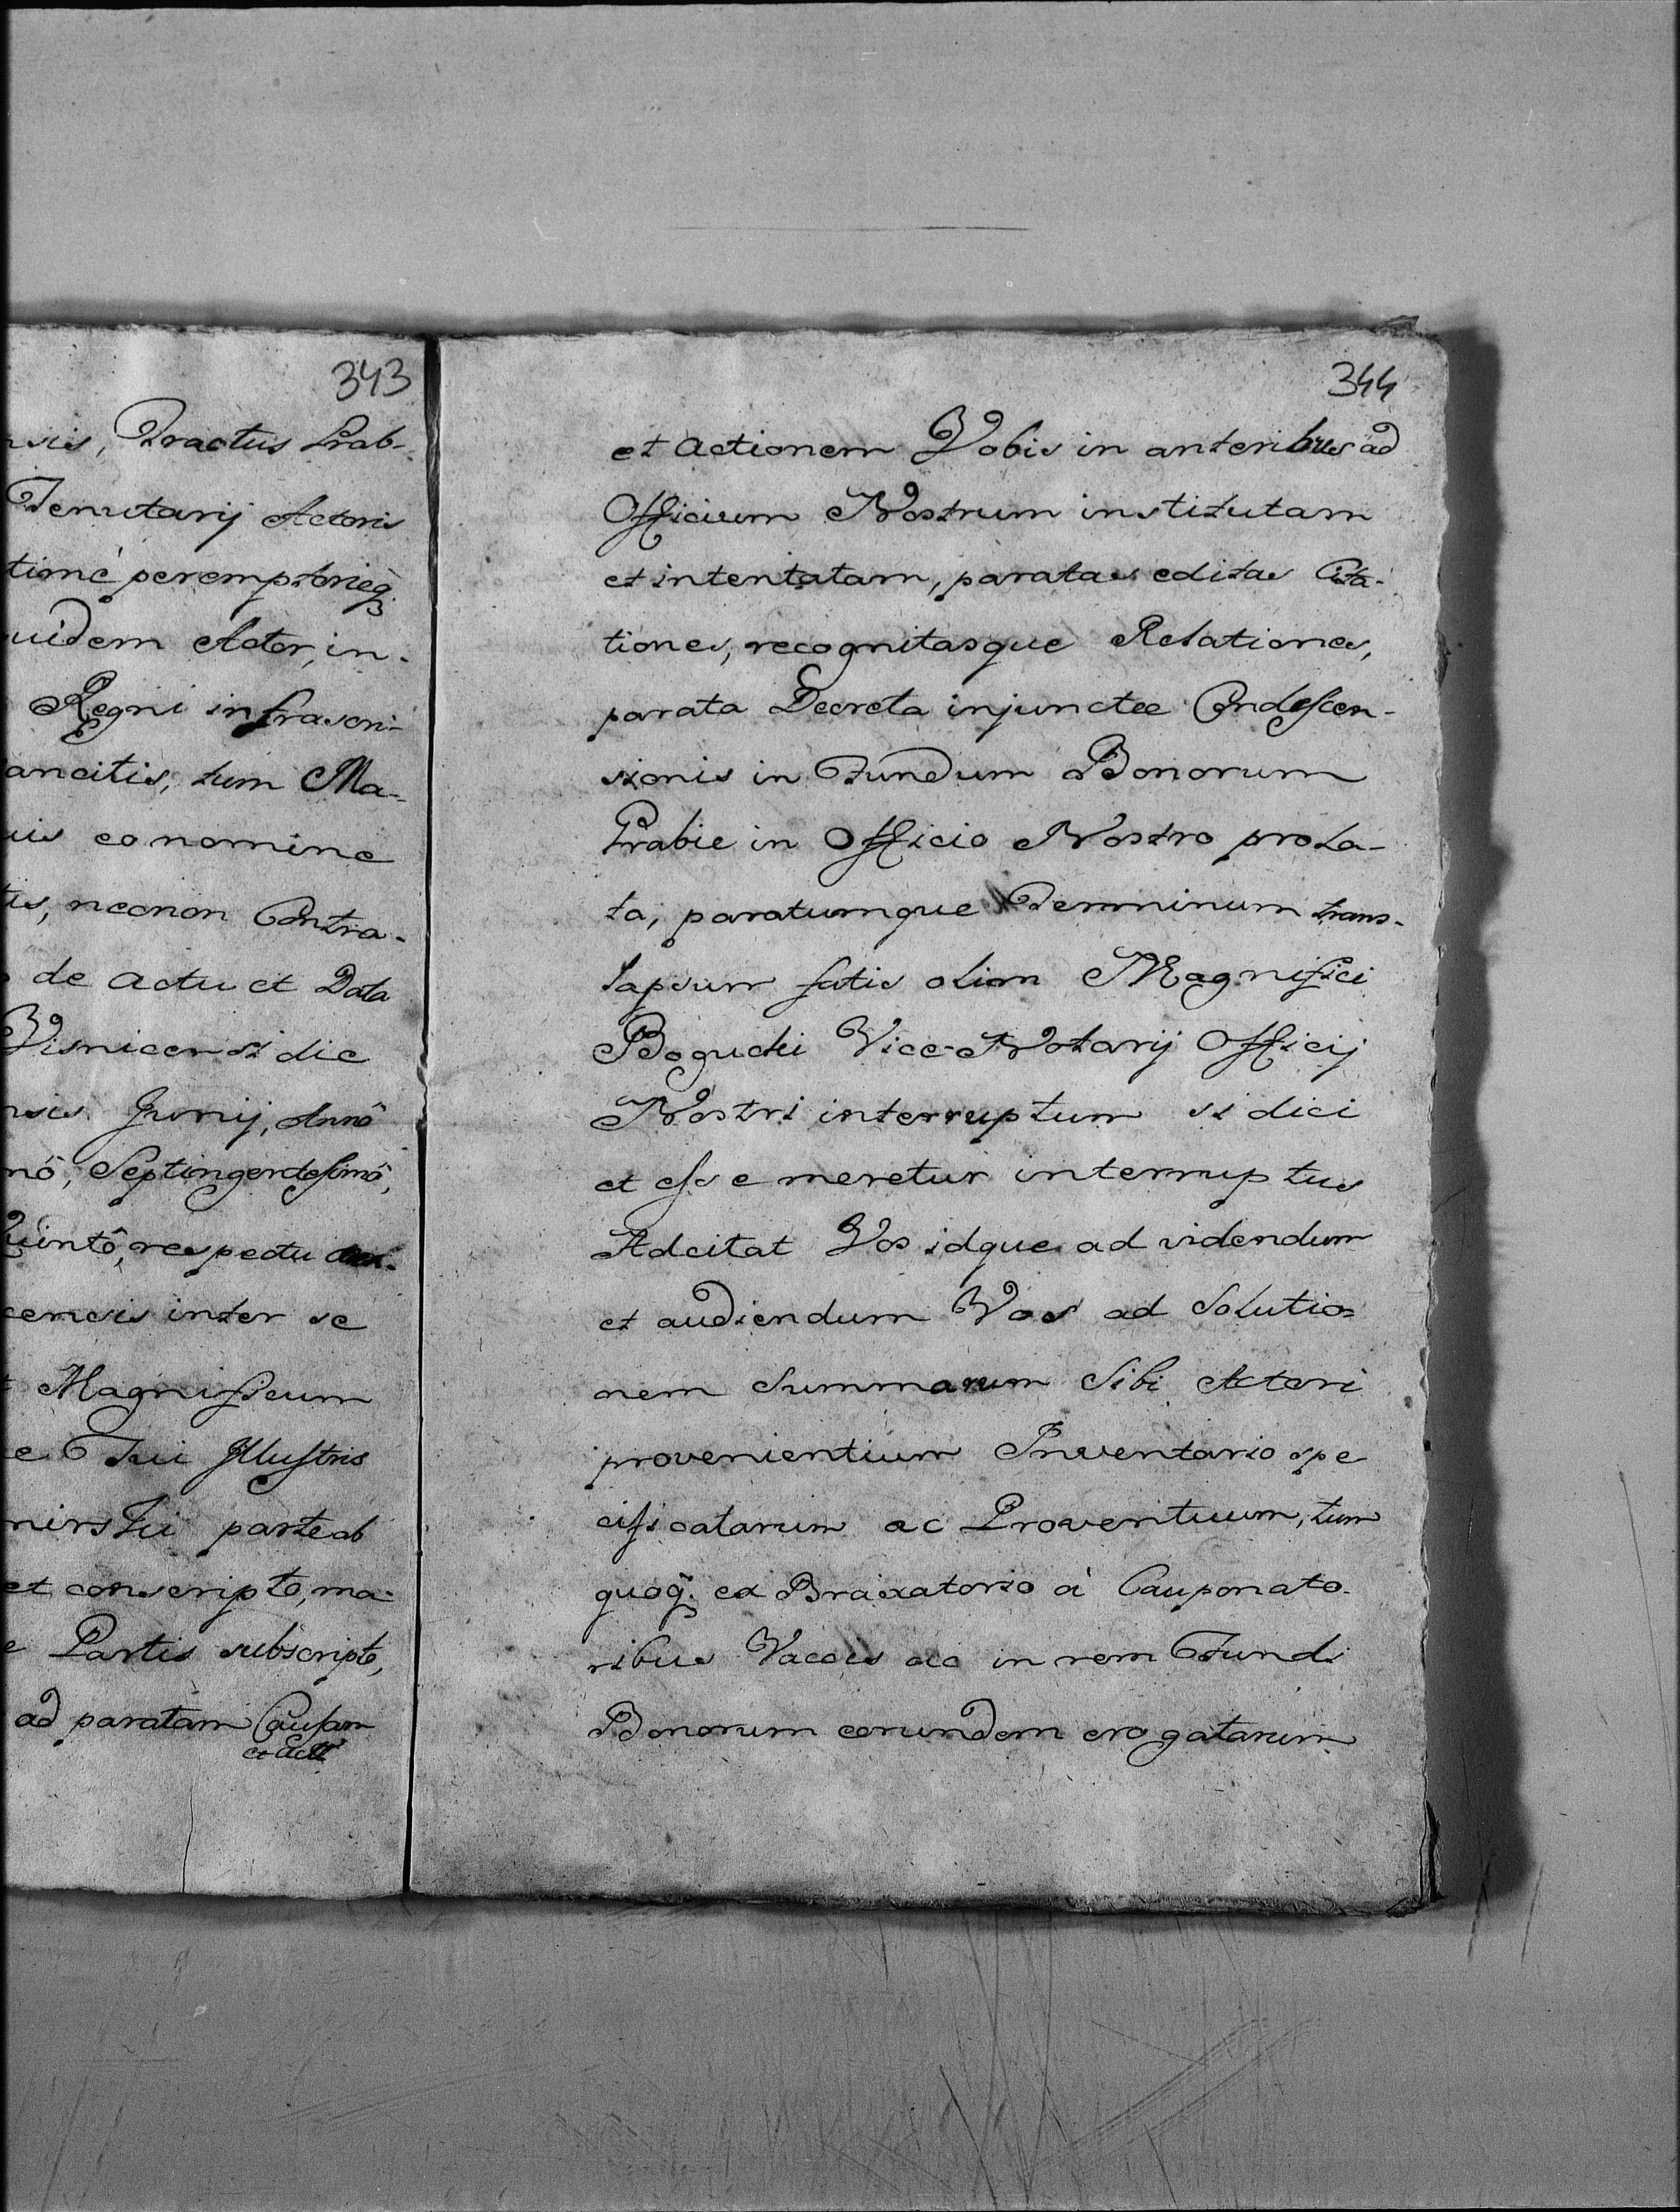 343
nsis, Tractus Prab-
Tenutarij Actoris
time peremptorieq3
uidem Actor, in-
Regni infrascri-
ancitis, tum Ma-
uis eo nomine
tis, necnon Contra-
de actu et Data
Visnicensi die
nsis Junij, Annô
nô, Septingentesimô,
Quintô, respectu
censis inter se
t Magnificum
e Tui Illustris
nirs Tui parte ab
et conscripto, ma-
e Partis subscripto,
ad paratam Causam
et Actt
344
et actionem Vobis in anteribus ad
Officium Nostrum institutam
et intentatam, paratas editas Cita-
tiones, recognitasque Relationes,
parata Decreta injunctae Condescen-
sionis in Fundum Bonorum
Prabie in Officio Nostro prola-
ta, paratumque Terminum trans-
lapsum fatis olim Magnifici
Bogucki Vice-Notarij Officij
Nostri interruptum si dici
et esse meretur interruptus
Adcitat Vos idque ad videndum
et audiendum Vos ad Solutio=
nem Summarum Sibi Actori
provenientium Inventario spe
cificatarum ac Proventuum, tum
quoq3 ex Braxatorio à Cauponato-
ribus Vaccis ac in rem Fundi
Bonorum eorundem erogatarum